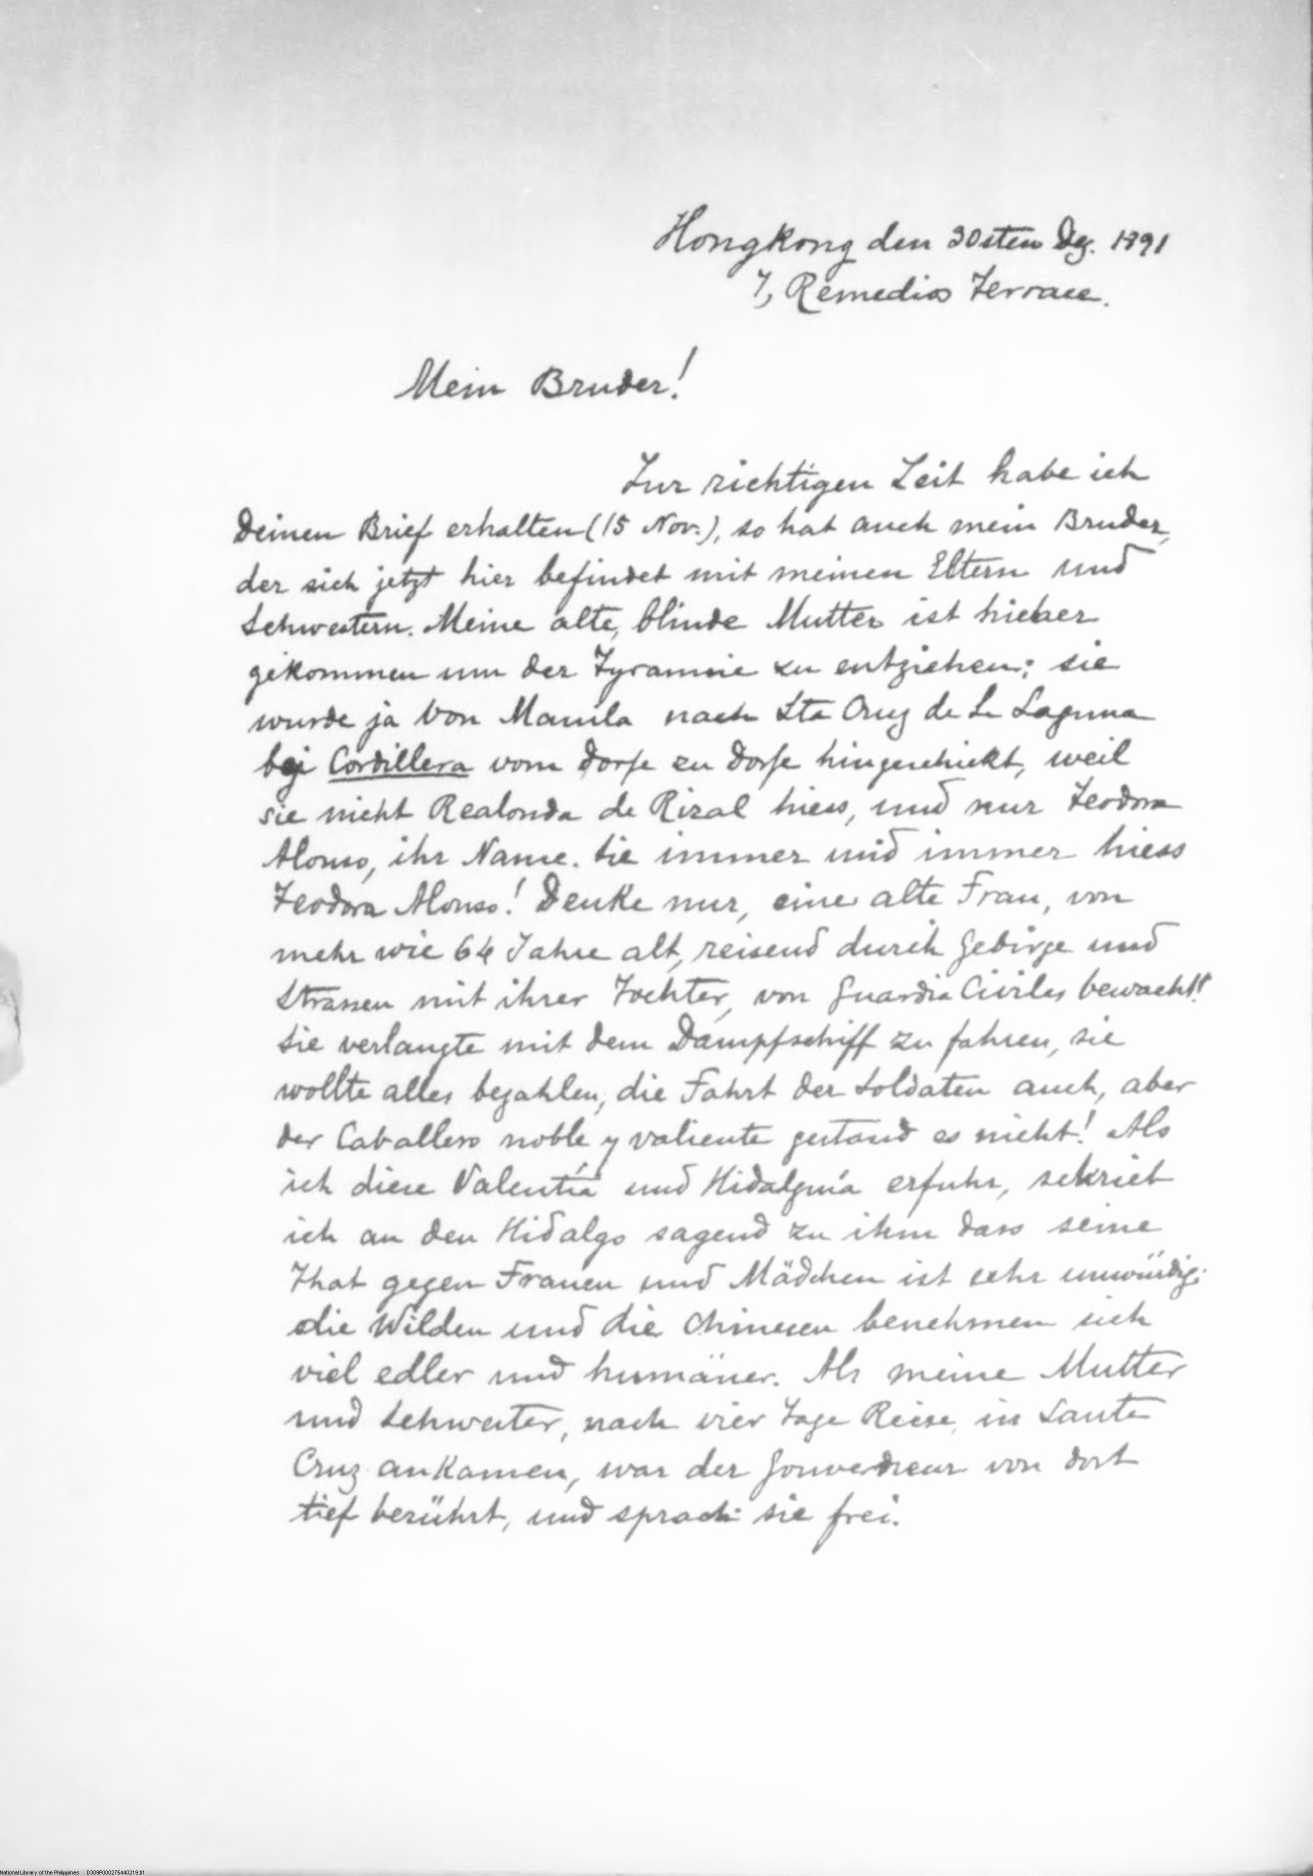 Hongkong den 30sten Dez. 1891
7, Remedios Terrace.
Mein Bruder!
Zur richtigen Zeit habe ich
Deinen Brief erhalten (15 Nov.), so hat auch mein Bruder,
der sich jetzt hier befindet mit meinen Eltern und
Schwestern. Meine alte, blinde Mutter ist hieher
gekommen um der Tyrannie zu entziehen; sie
wurde ja von Manila nach Sta Cruz de La Laguna
bei Cordillera vom Dorfe zu Dorfe hingeschickt, weil
sie nicht Realonda de Rizal hiess, und nur Teodora
Alonso, ihr Name. Sie immer und immer hiess
Teodora Alonso! Denke nur, eine alte Frau, von
mehr wie 64 Jahre alt, reisend durch Gebirge und
Strassen mit ihrer Tochter, von Guardia Civiles bewacht!
Sie verlangte mit dem Dampfschiff zu fahren, sie
wollte alles bezahlen, die Fahrt der Soldaten auch, aber
der Caballero noble y valiente gestand es nicht! Als
ich diese Valentía und Hidalguía erfuhr, schrieb
ich an den Hidalgo sagend zu ihm dass seine
That gegen Frauen und Mädchen ist sehr unwürdig;
die Wilden und die Chinesen benehmen sich
viel edler und humäner. Als meine Mutter
und Schwester, nach vier Tage Reise, in Santa
Cruz ankamen, war der Gouverneur von dort
tief berührt, und sprach sie frei.
National Library of the Philippines